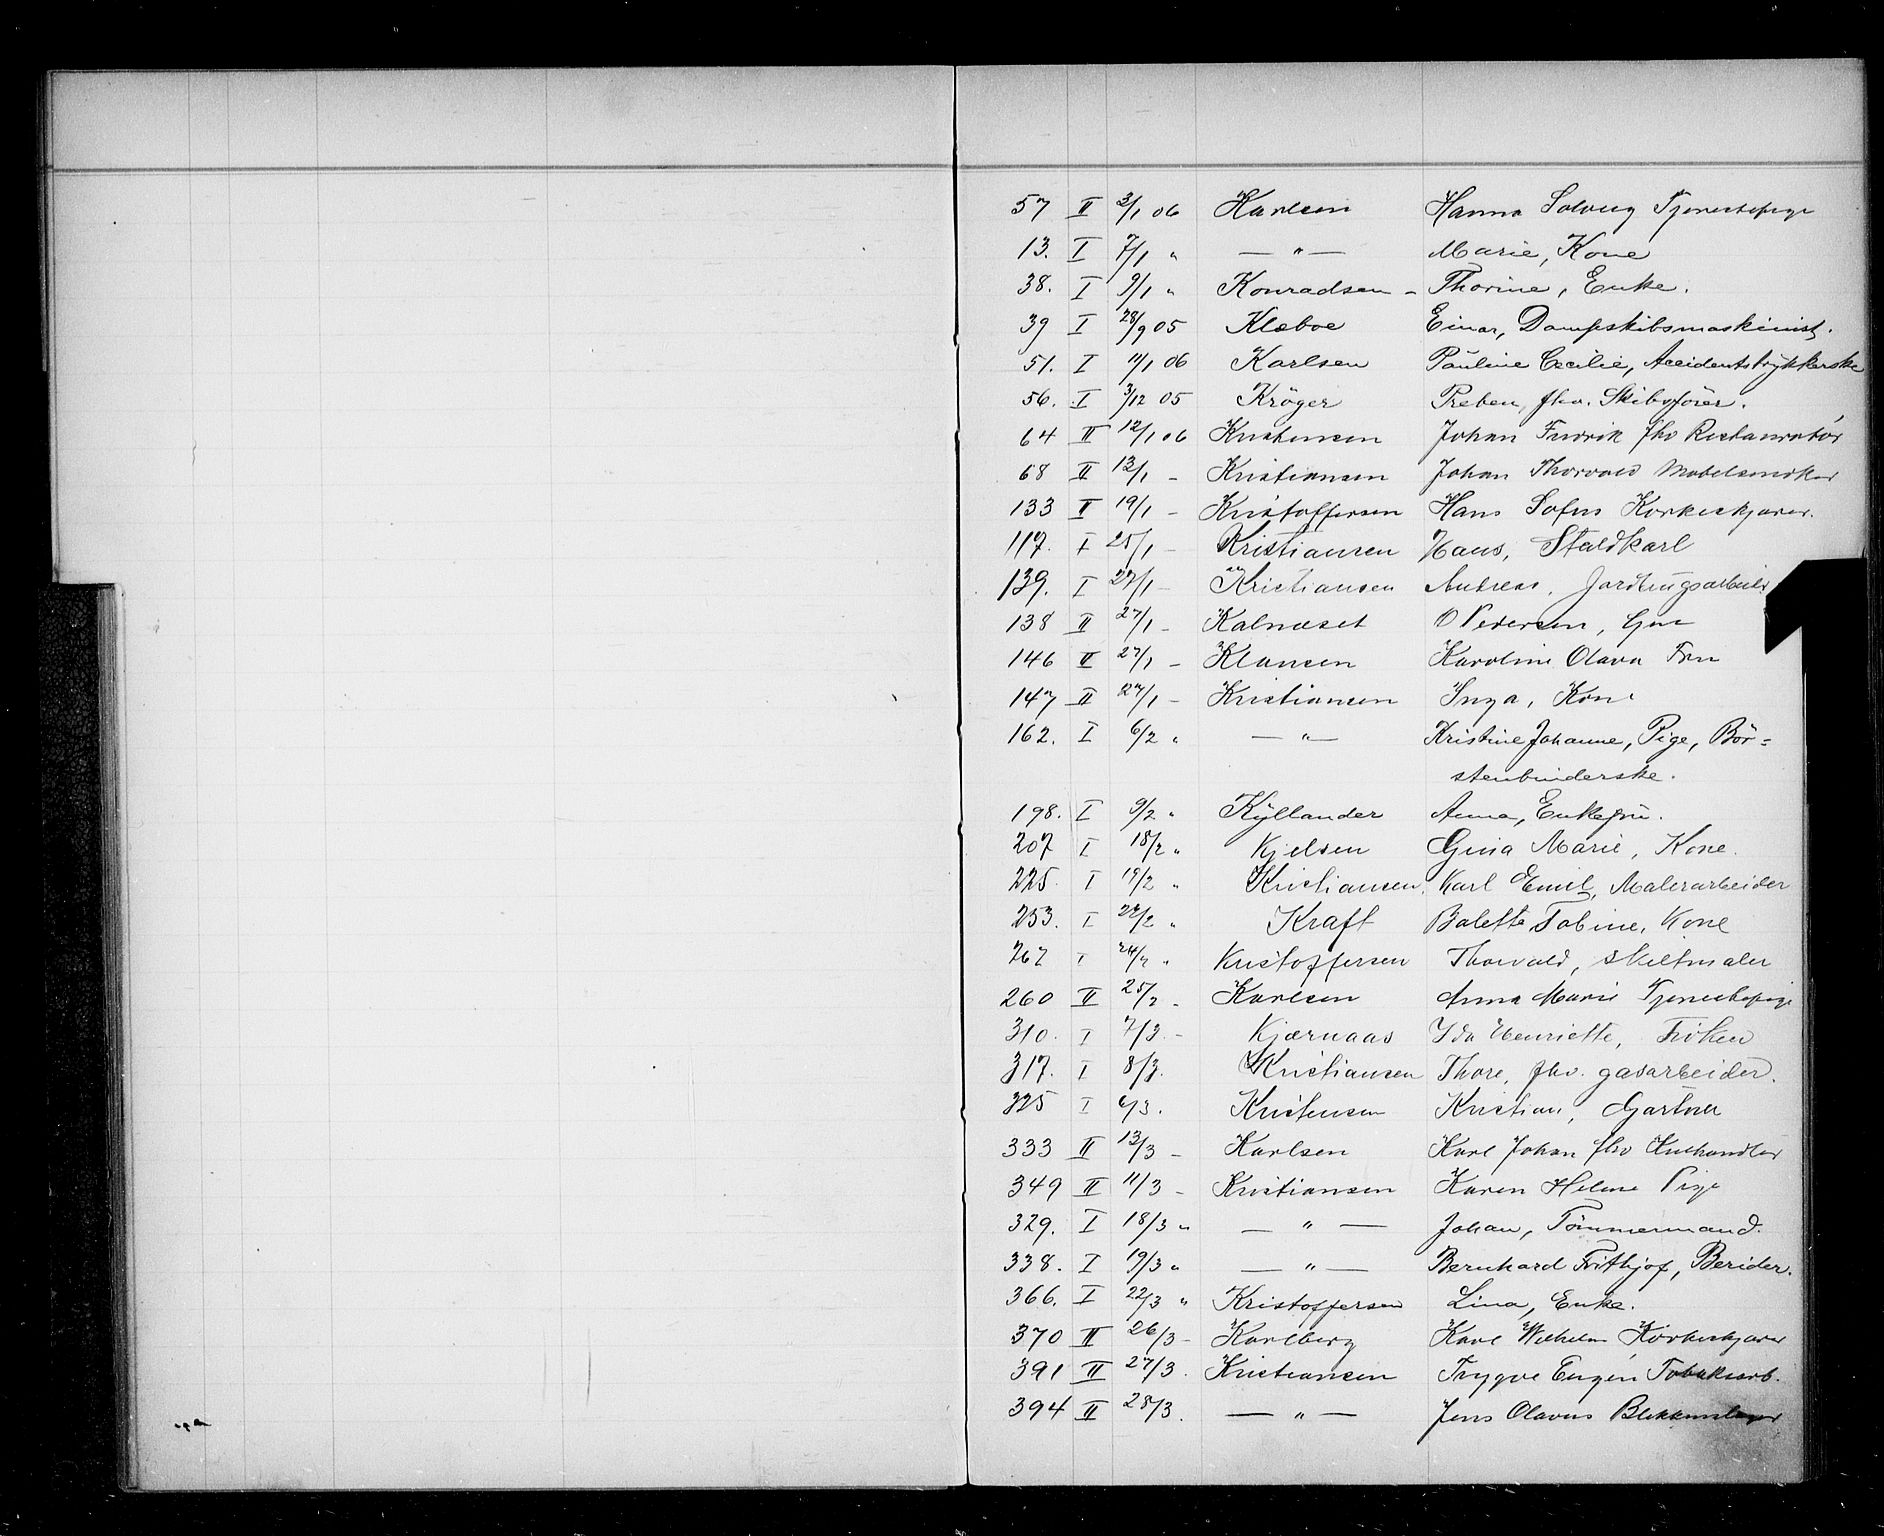 57 II 3/1 06 Karlsen Hanna Solveig Tjenestepige
13. I 7/1 " — " — Marie, Kone
38. I 9/1 " Konradsen - Thorine, Enke.
39 I 28/9 05 Klæboe Einar, Dampskibsmaskinist.
51. I 11/1 06 Karlsen Pauline Cecilie, Accidentstrykkerske
56. I 3/12 05 Krøger Preben, fhv. Skibsfører.
64 II 12/1 06 Kristensen Johan Fredrik fhv Restauratør
68 II 13/1 - Kristiansen Johan Thorvald Møbelsnedker
133 II 19/1 - Kristoffersen Hans Sofus Korkeskjærer.
117. I 25/1 - Kristiansen Hans, Staldkarl
139. I 27/1 - Kristiansen Andreas, Jordbrugsarbeider
138 II 27/1 - Kalnæset O Pedersen,
146 II 27/1 - Klausen Karoline Olava Fru
147 II 27/1 - Kristiansen Inga, Kone
162. I 6/2 " — " — Kristine Johanne, Pige, Bør=
stenbinderske.
198. I 9/2 " Kyllander Anna, Enkefru.
207 I 18/2 " Kjelsen Gina Marie, Kone.
225. I 19/2 " Kristiansen, Karl Emil, Malerarbeider
253. I 22/2 " Kraft Bolette Tobine, Kone
267 I 24/2 " Kristoffersen Thorvald, Skiltmaler
260 II 25/2 - Karlsen Anna Marie Tjenestepige
310. I 7/3 - Kjærnaas Ida Henriette, Frøken
317. I 8/3. Kristiansen Thore, fhv. gasarbeider.
325 I 6/3. Kristensen Kristian, Gartner
333 II 13/3 - Karlsen Karl Johan fhv Kulhandler
349 II 11/3 - Kristiansen Karen Helene Pige
329. I 18/3 " — " — Johan, Tømmermand.
338. I 19/3 " — " — Bernhard Frithjof, Berider.
366. I 22/3 " Kristoffersen Lina, Enke.
370 II 26/3 - Karlberg Karl Wilhelm Korkeskjærer
391 II 27/3. Kristiansen Trygve Eugen Tobaksarb.
394 II 28/3. — " — Jens Olavus Blikkenslager